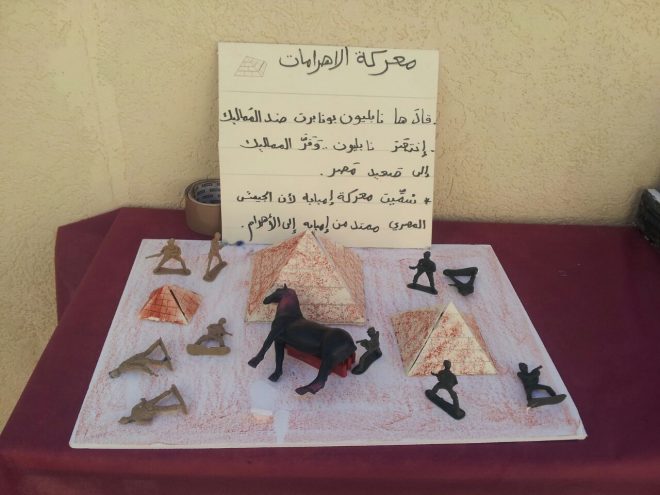 معركة الاهرامات
. قادها نابليون بونابرت ضد المماليك
. إنتصر نابليون .. وفرّ المماليك
إلى صعيد مصر .
* سُمِّيت معركة إمبابة لأن الجيش
المصري ممتد من إمبابه إلى الأهرام .